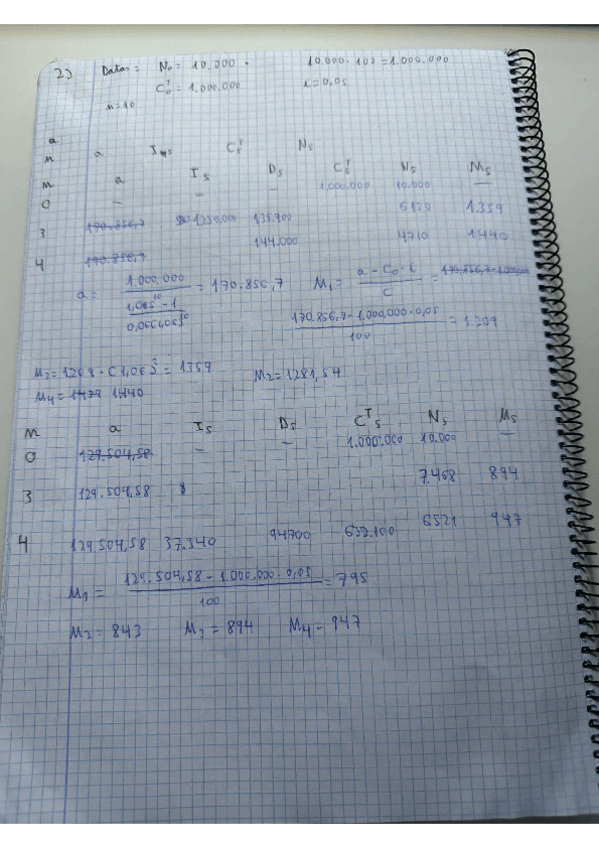 2) Datos: N₀ = 10.000 · 10.000 · 100 = 1.000.000
C₀ᵀ = 1.000.000 i = 0,05
n = 10
a
n a Ims CₛT Nₛ
n a Iₛ Dₛ CₛT Nₛ Mₛ
0 — — — 1.000.000 10.000 —
3 170.856,7 1250,00 135.900 6150 1359
4 170.856,7 144.000 4710 1440
a = 1.000.000 / = 170.856,7 M₁ = a - C₀ · i / C =
1,065¹⁰ - 1
170.856,7 - 1.000.000 · 0,05 / 100 = 1.209
M₃ = 1209 · (1,06)² = 1359 M₂ = 1281,54
M₄ = 1440
n a Iₛ Dₛ CₛT Nₛ Mₛ
0 129.504,58 — — 1.000.000 10.000 —
3 129.504,58 7.468 894
4 129.504,58 37.340 94700 652.100 6521 947
M₁ = 129.504,58 - 1.000.000 · 0,05 / 100 = 795
M₂ = 843 M₃ = 894 M₄ = 947